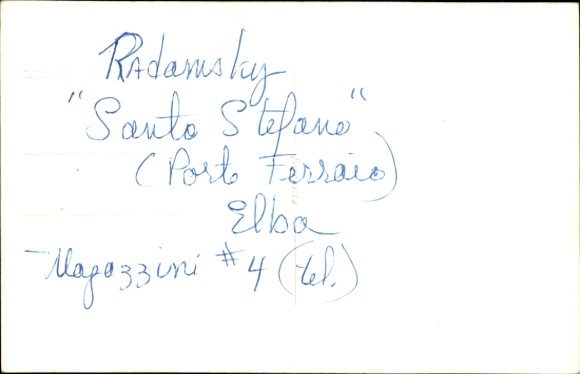 Radamsky
"Santo Stefano"
(Porto Ferraio)
Elba
- Magazzini # 4 (tel.)